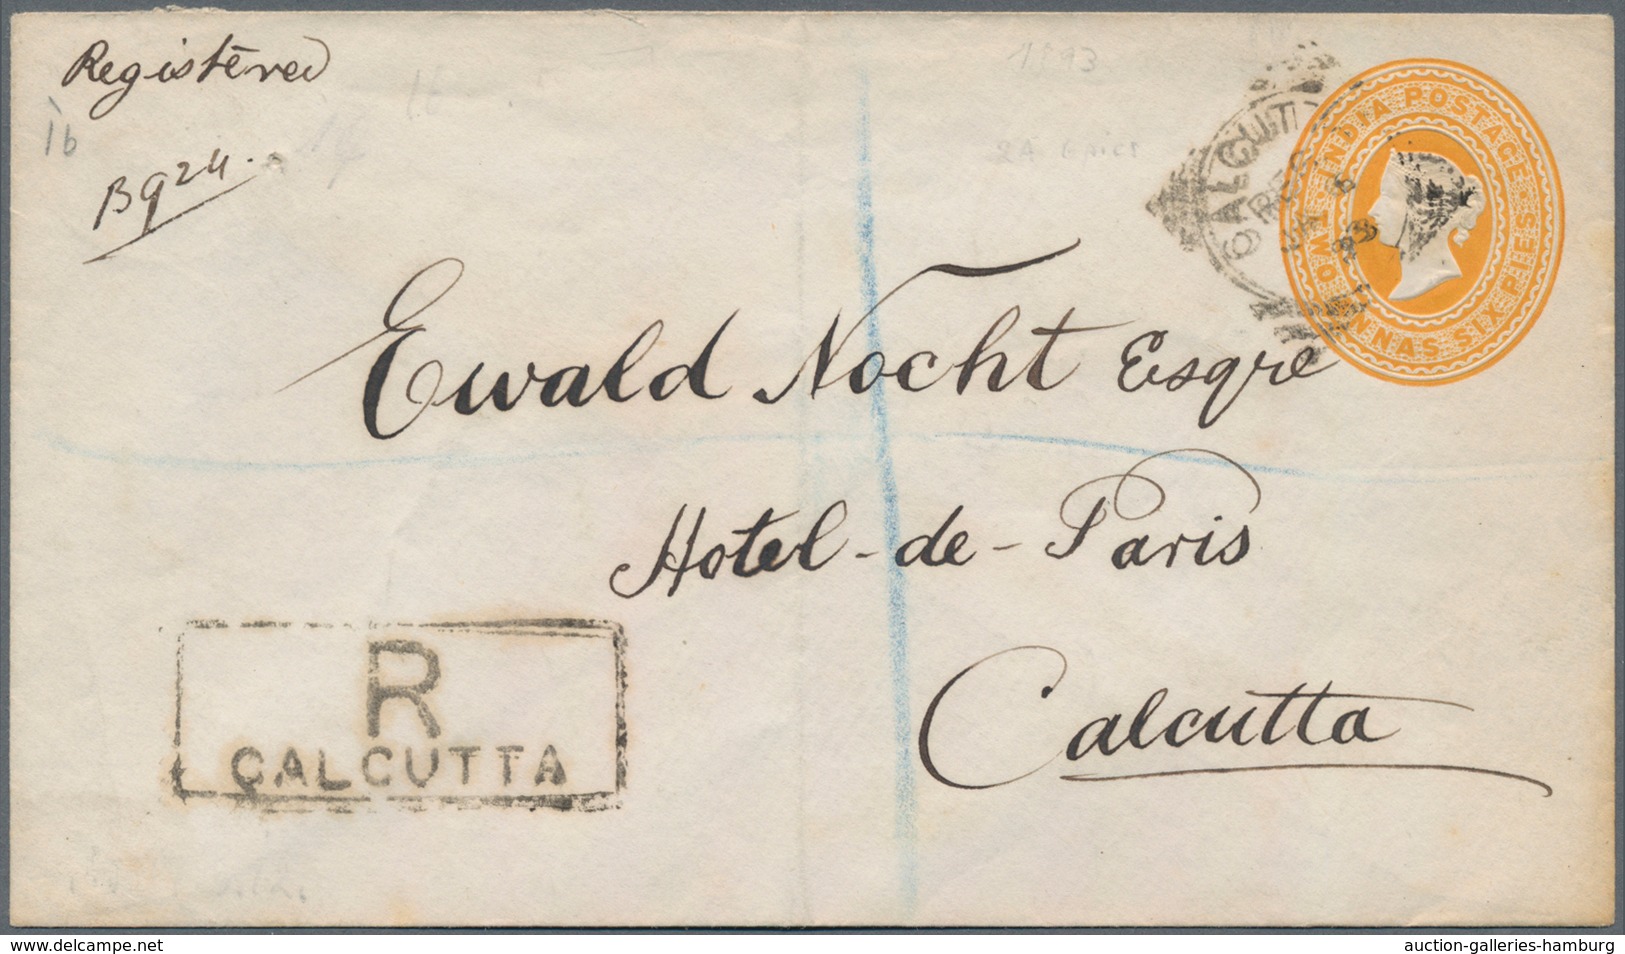 Registered
1893
16
16
2A 6 pies
B924.
CALCUTT
REG
93
INDIA POSTAGE
TWO ANNAS SIX PIES
Ewald Nocht Esqre
Hotel-de-Paris
Calcutta
R
CALCUTTA
www.delcampe.net
auction-galleries-hamburg